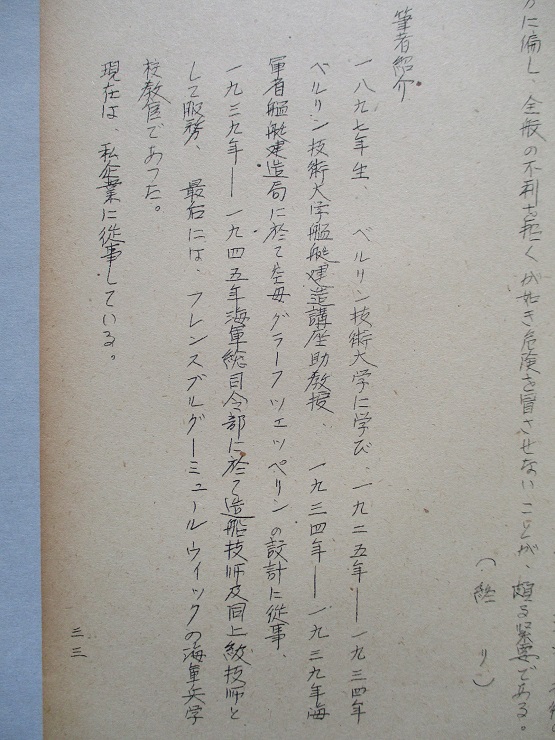 方に偏し、全般の不利を招くが如き危険を冒さしめないことが、頗る緊要である。
(終り)
筆者紹介
一八九七年生、ベルリン技術大学に学び、一九二五年――一九三四年
ベルリン技術大学艦艇建造講座助教授、一九三四年――一九三九年海
軍省艦艇建造局に於て空母グラーフツェッペリンの設計に従事、
一九三九年――一九四五年海軍総司令部に於て造船技師及同上級技師と
して服務、最后には、フレンスブルグーミュールウイックの海軍兵学
校教官であった。
現在は、私企業に従事している。
三三